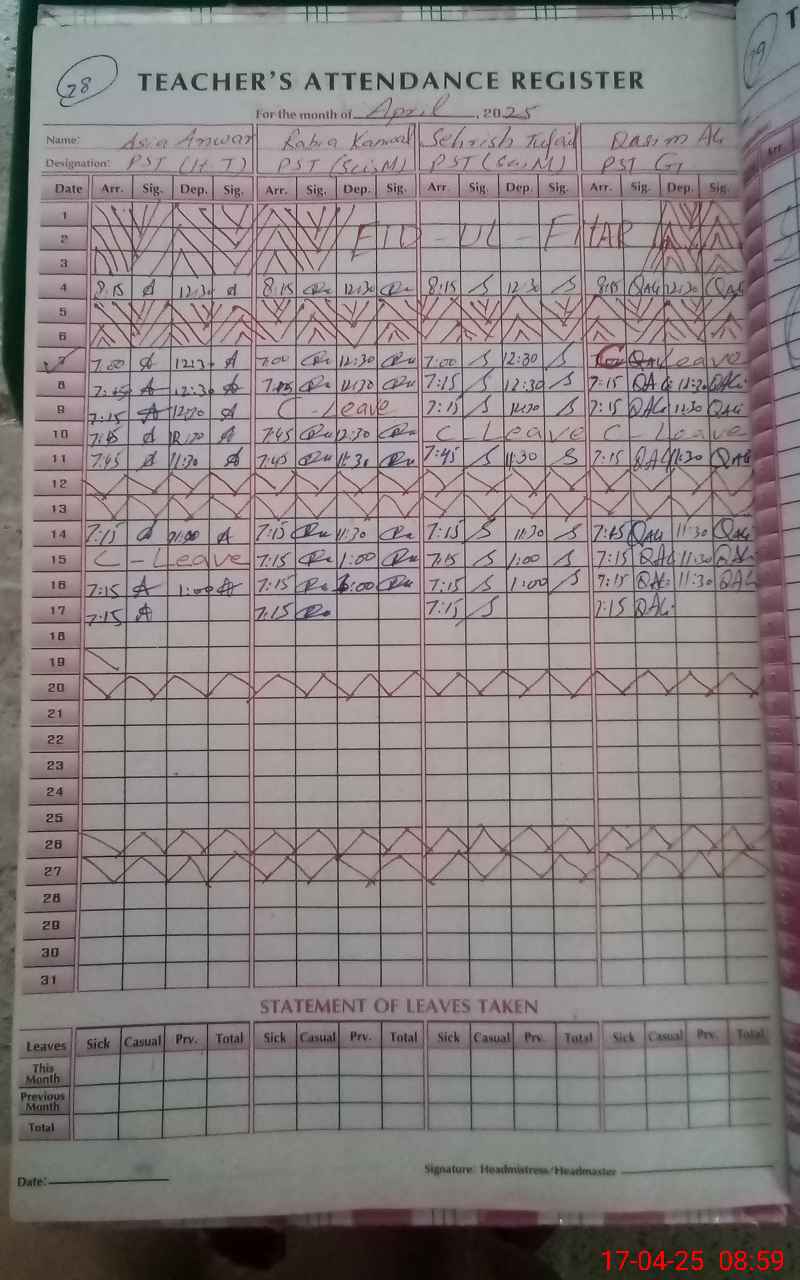 28
TEACHER'S ATTENDANCE REGISTER
For the month of April, 2025
Name: Asia Anwar Rabia Kanwal Sehrish Tufail Qasim Ali
Designation: PST (H.T) PST (Sci&M) PST (Sci&M) PST G1
Date Arr. Sig. Dep. Sig. Arr. Sig. Dep. Sig. Arr. Sig. Dep. Sig. Arr. Sig. Dep. Sig.
1
2 EID-UL-FITAR
3
4 8:15 A 12:30 A 8:15 12:30 8:15 S 12:30 S 8:15 QAli 12:30 QAli
5
6
7 7:00 A 12:30 A 7:00 12:30 7:00 S 12:30 S C QAli Leave
8 7:15 A 12:30 A 7:15 12:30 7:15 S 12:30 S 7:15 QAli 12:30 QAli
9 7:15 A 12:30 A C-Leave 7:15 S 12:30 S 7:15 QAli 12:30 QAli
10 7:45 A 12:30 A 7:45 12:30 C-Leave C-Leave
11 7:45 A 11:30 A 7:45 11:30 7:45 S 11:30 S 7:15 QAli 11:30 QAli
12
13
14 7:15 A A 7:15 11:30 7:15 S 11:30 S 7:15 QAli 11:30 QAli
15 C-Leave 7:15 1:00 7:15 S 1:00 S 7:15 QAli 11:30 QAli
16 7:15 A 1:00 A 7:15 1:00 7:15 S 1:00 S 7:15 QAli 11:30 QAli
17 7:15 A 7:15 7:15 S 7:15 QAli
18
19
20
21
22
23
24
25
26
27
28
29
30
31
STATEMENT OF LEAVES TAKEN
Leaves Sick Casual Prv. Total Sick Casual Prv. Total Sick Casual Prv. Total Sick Casual Prv. Total
This Month
Previous Month
Total
Signature: Headmistress/Headmaster
Date:
17-04-25 08:59